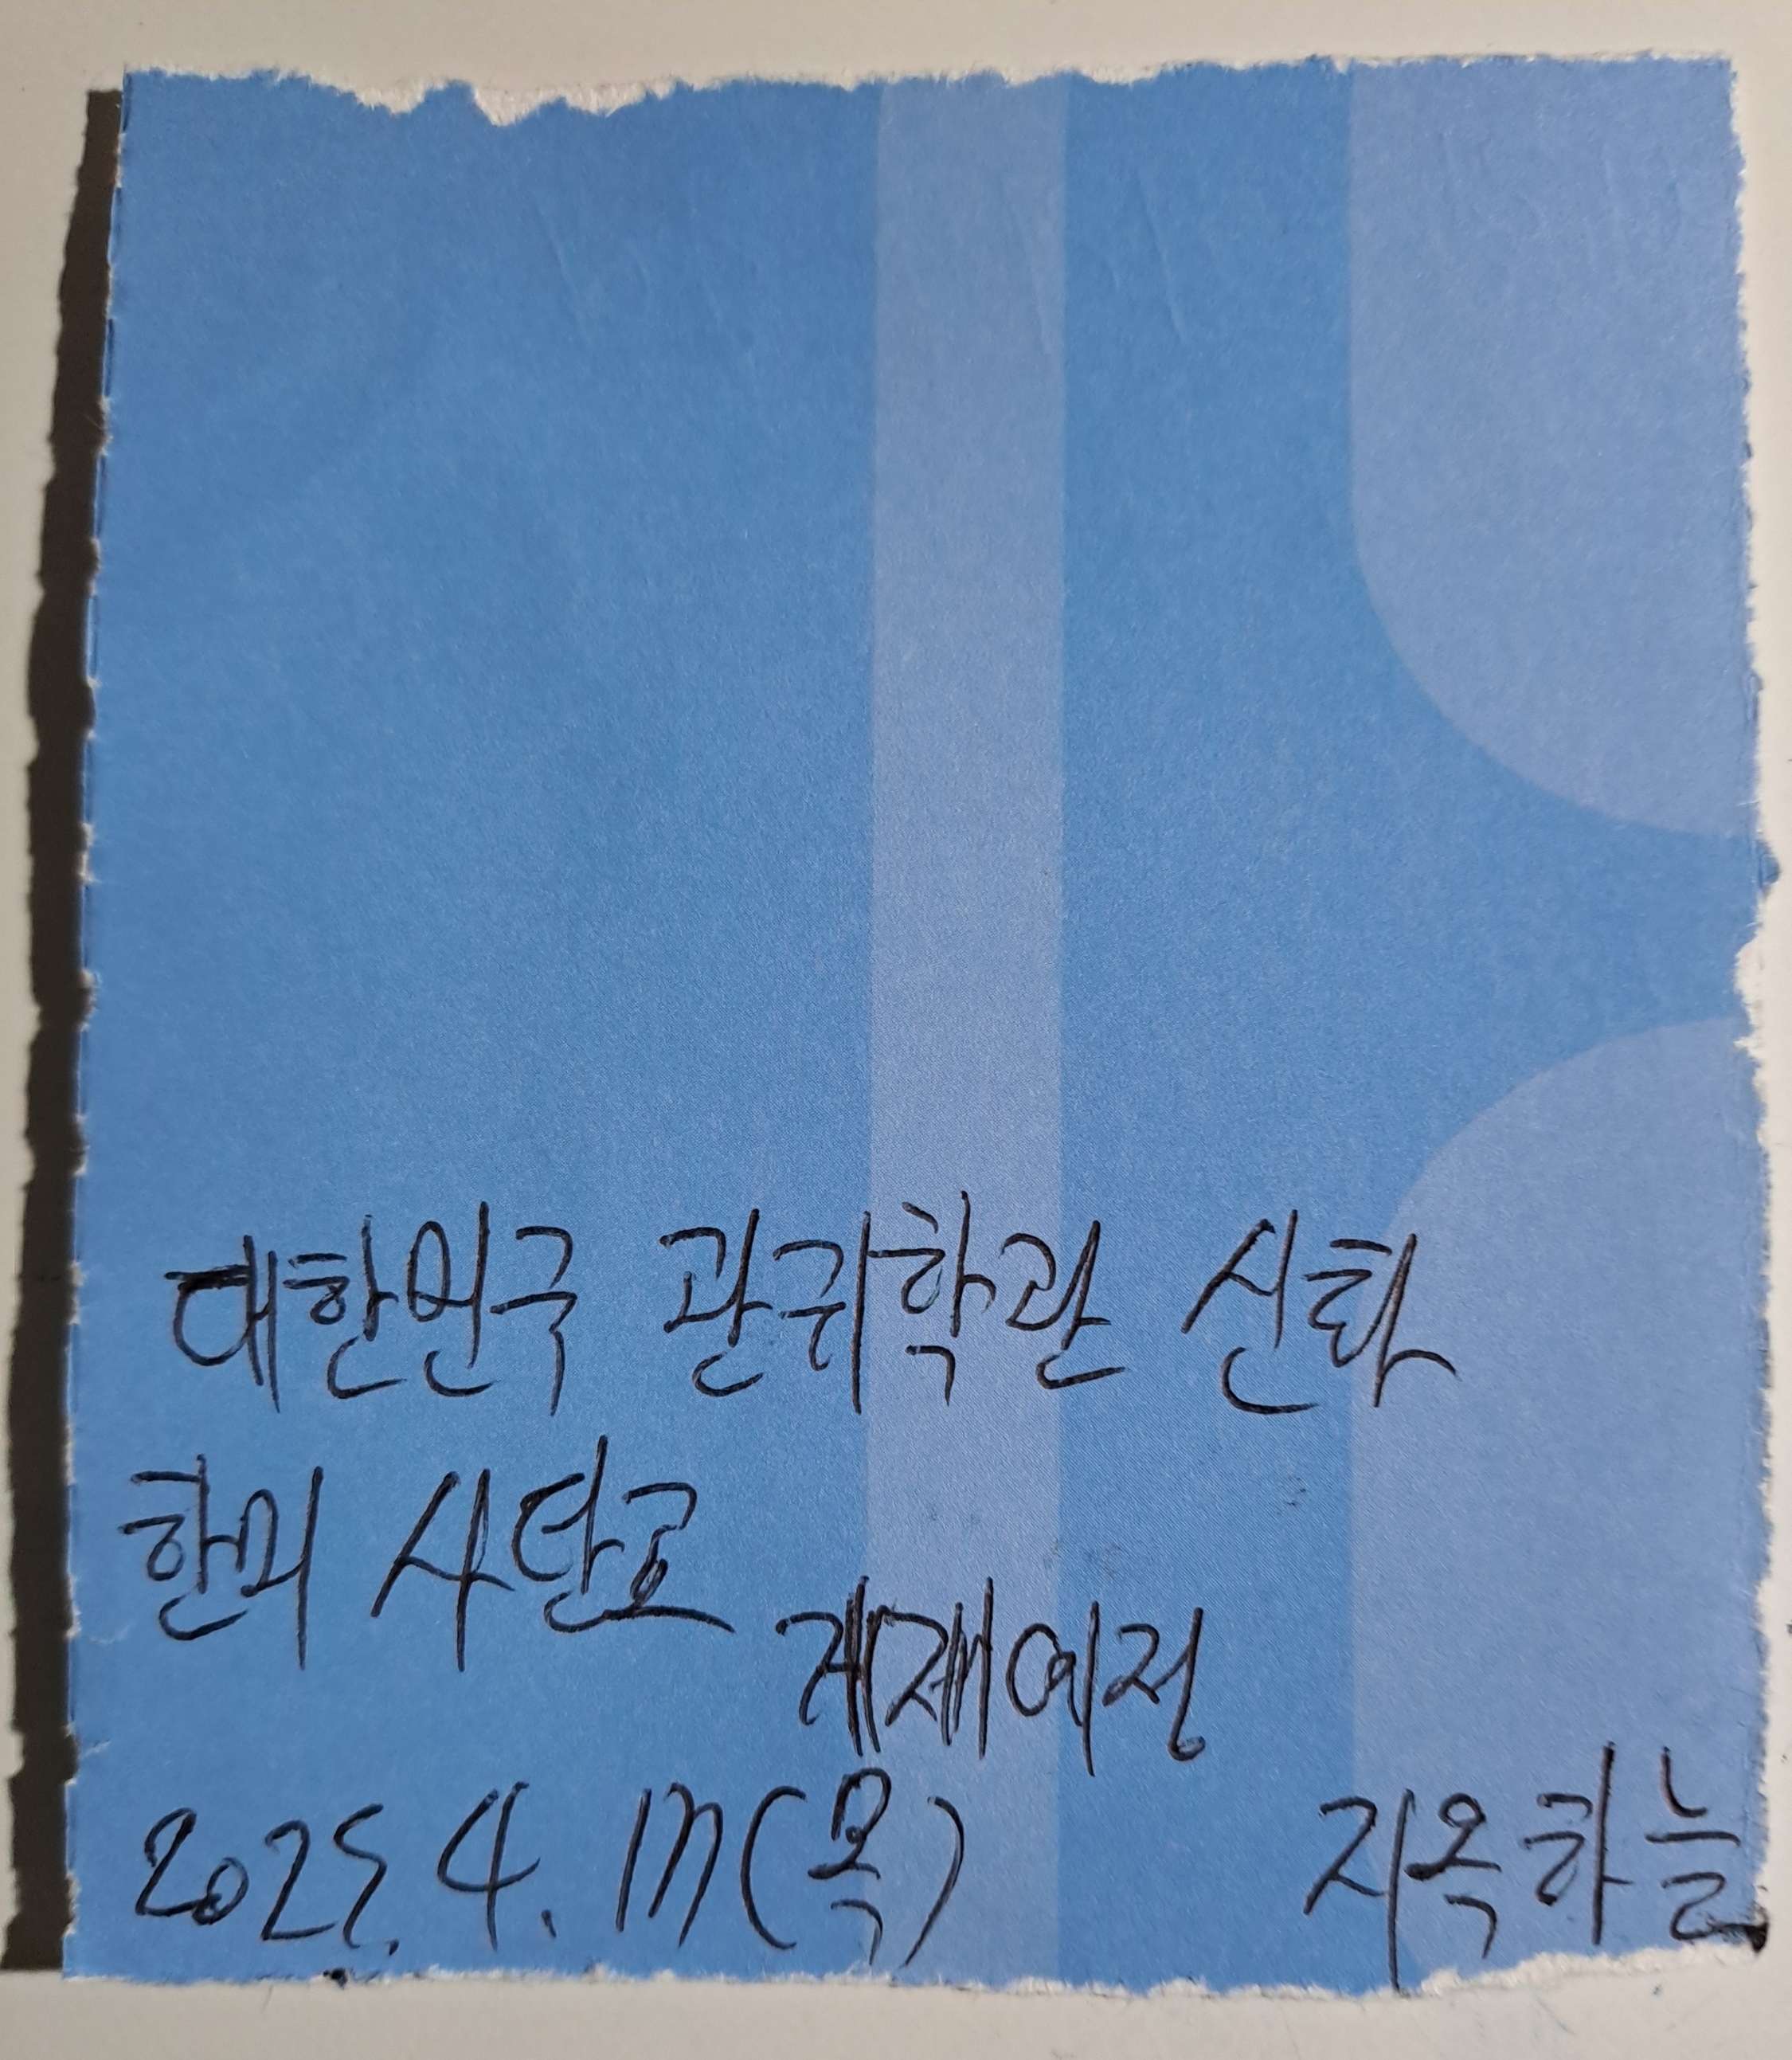 대한민국 관귀학관 신화
한미 사단고
게재예정
2025. 4. 17(목) 지옥하늘